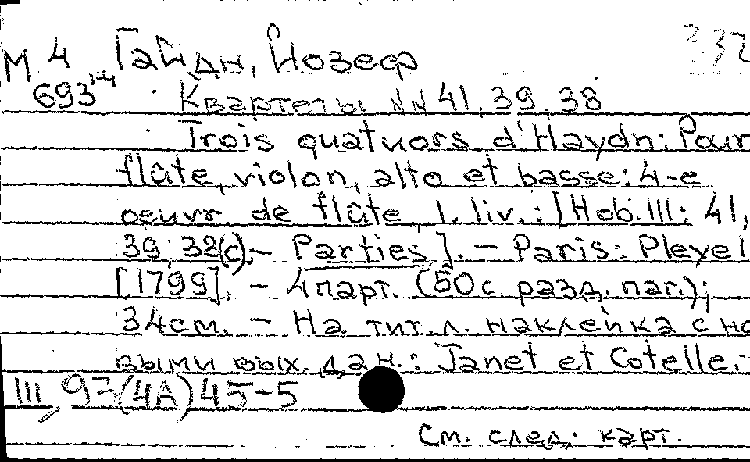 М 4 Гайдн, Йозеф 332
693¹⁻⁴ Квартеты NN 41, 39, 38
Trois quatuors d'Haydn: Pour
flûte, violon, alto et basse: 4-e
oeuvr. de flûte, 1. liv.: [Hob.III: 41,
39, 38(c).- Parties]. - Paris: Pleyel
[1799]. - 4 парт. (50 с. разд. паг.);
34см. - На тит. л. наклейка с но
выми вых. дан.: Janet et Cotelle.-
III, 97(4А)45-5
См. след. карт.